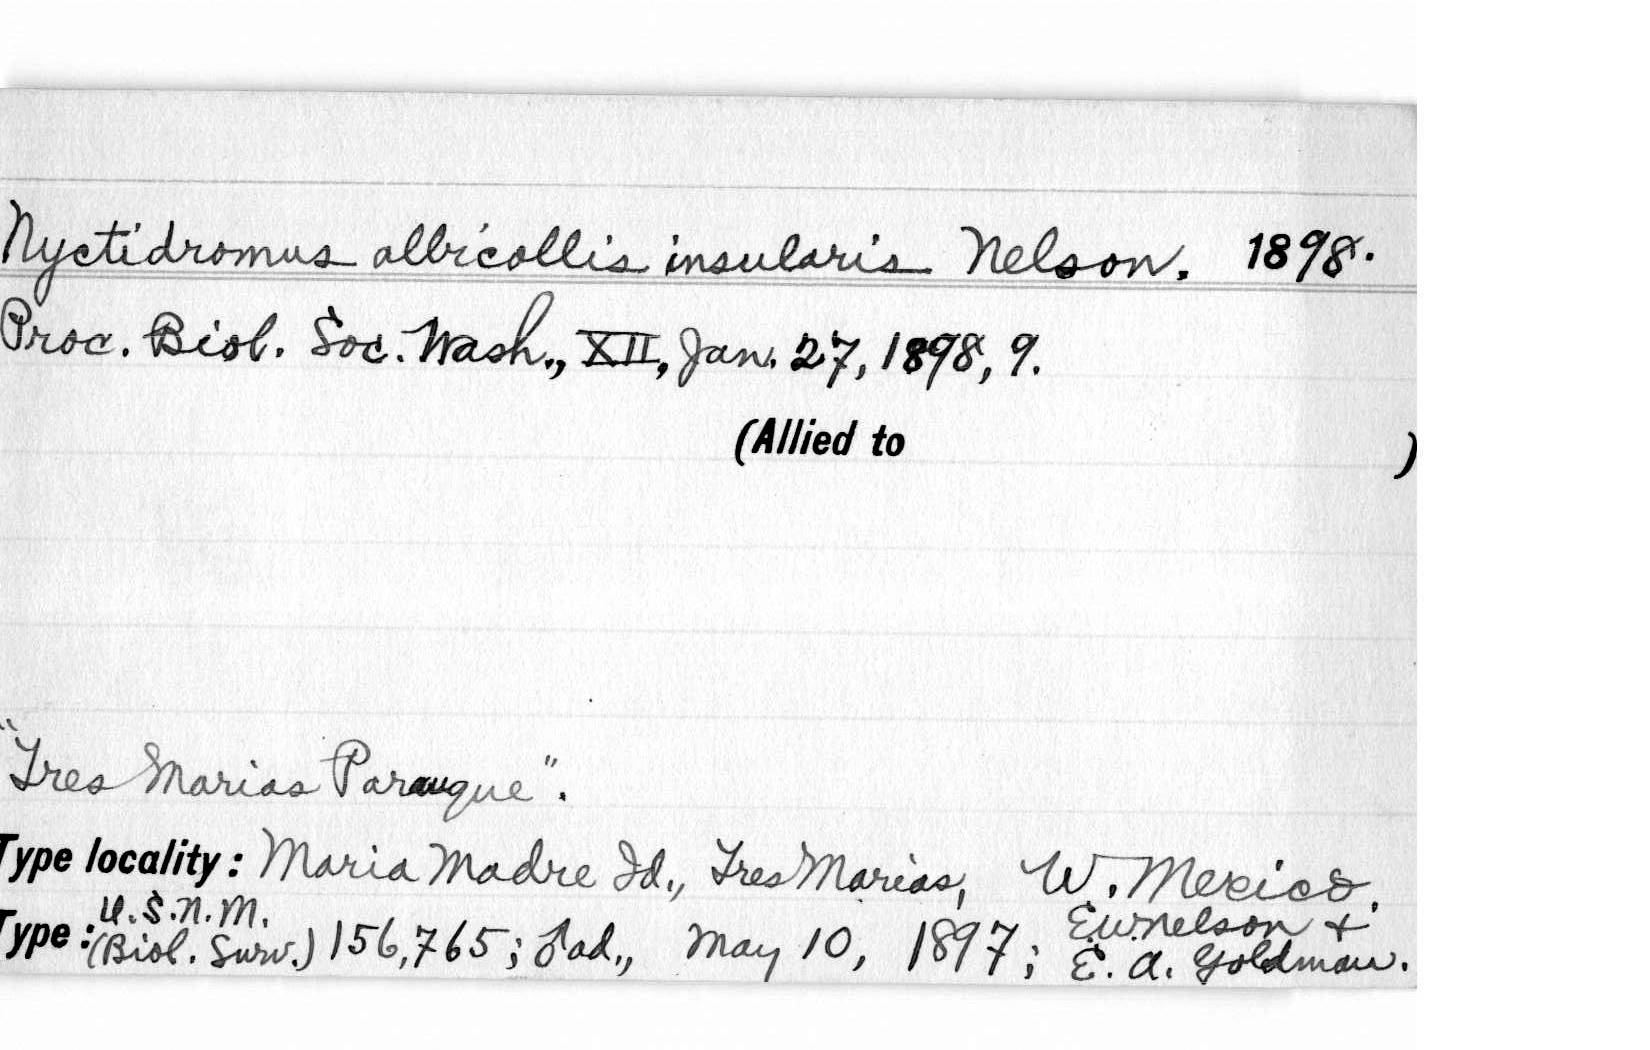 Nyctidromus albicollis insularis Nelson. 1898.
Proc. Biol. Soc. Wash., XII, Jan. 27, 1898, 9.
(Allied to )
"Tres Marias Parauque".
Type locality: Maria Madre Id., Tres Marias, W. Mexico.
Type: U.S.N.M. (Biol. Surv.) 156,765; ♂ad., May 10, 1897; E.W. Nelson + E. A. Goldman.